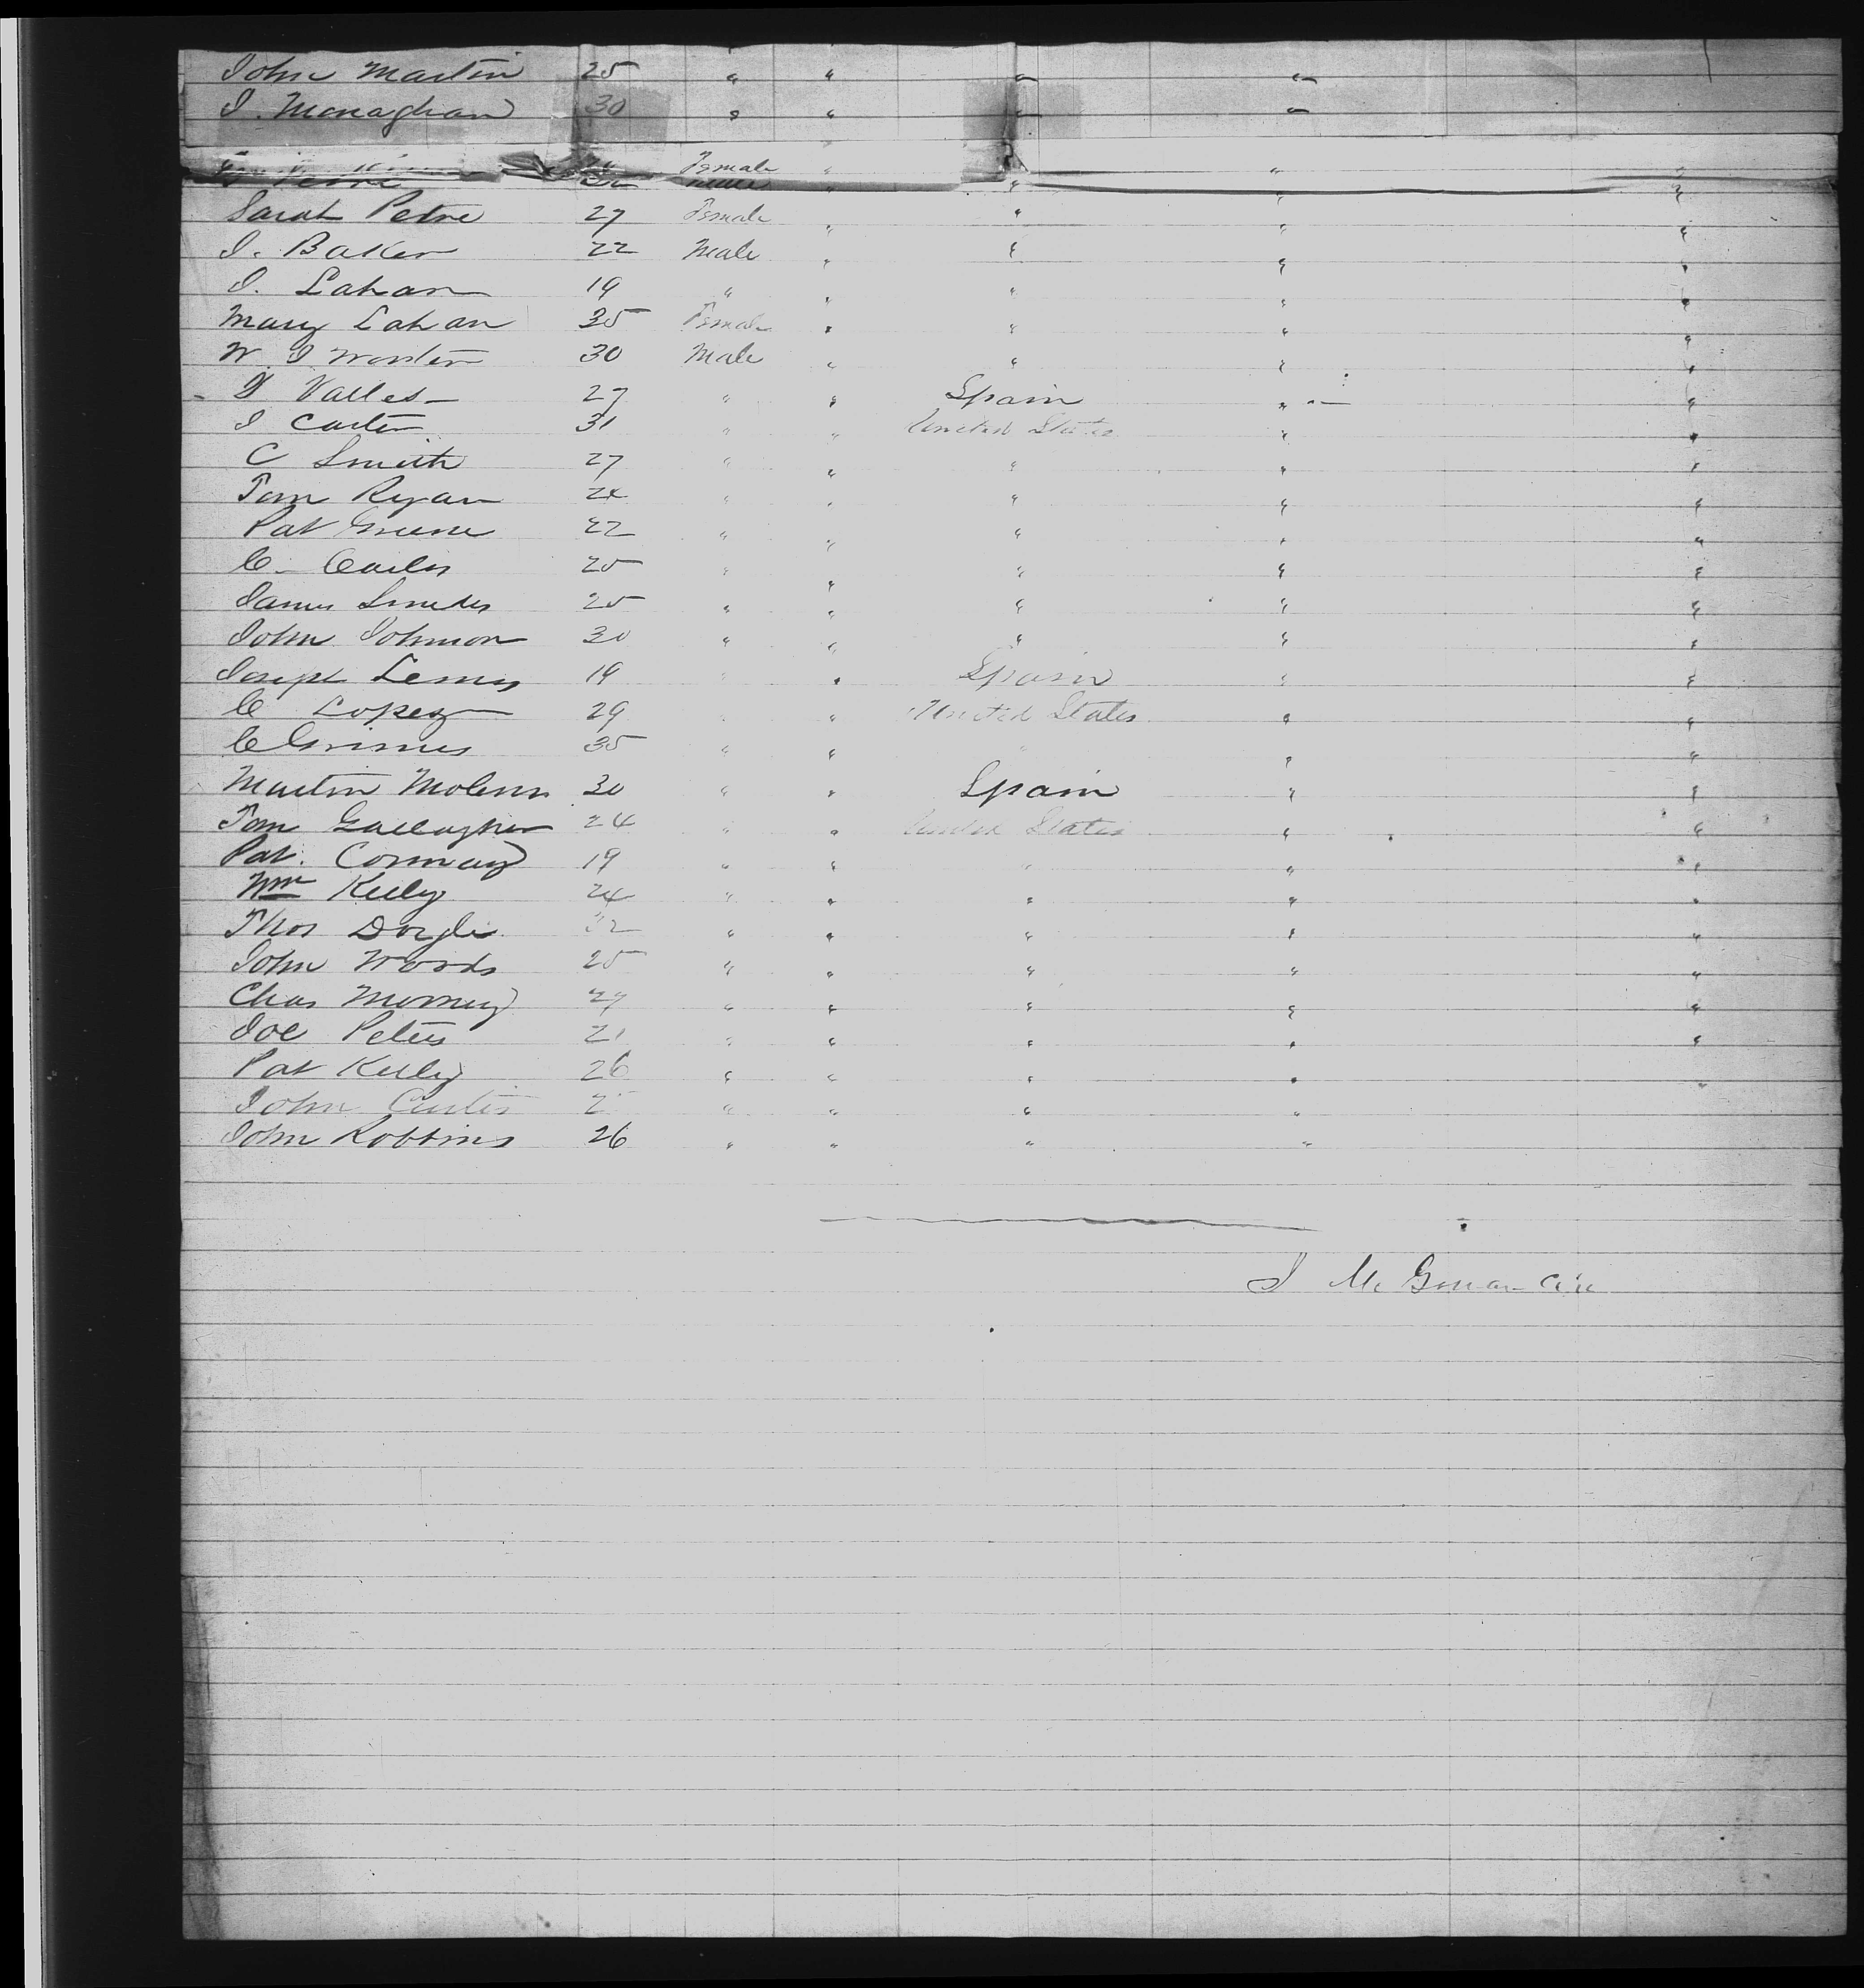 John Martin 25 " " " "
J. Monaghan 30 " " " "
Female " " "
Petre " " " "
Sarah Petre 27 Female " " " "
J. Baker 22 Male " " " "
J. Lahan 19 " " " " "
Mary Lahan 35 Female " " " "
W. J 30 Male " " " "
Valles 27 " " Spain " "
J Carter 31 " " United States " "
C Smith 27 " " " " "
Tom Ryan 24 " " " " "
Pat Greene 22 " " " " "
C. 25 " " " " "
James 25 " " " " "
John Johnson 30 " " " " "
Joseph 19 " " Spain " "
C Lopez 29 " " United States " "
C Grimes 35 " " " " "
Martin 30 " " Spain " "
Tom Gallagher 24 " " United States " "
Pat. 19 " " " " "
Wm Kelly 24 " " " " "
Thos Doyle 32 " " " " "
John Woods 25 " " " " "
Chas " " " " "
Joe Peters 21 " " " " "
Pat Kelly 26 " " " " "
John Curtis " " " "
John Robbins 26 " " " "
J